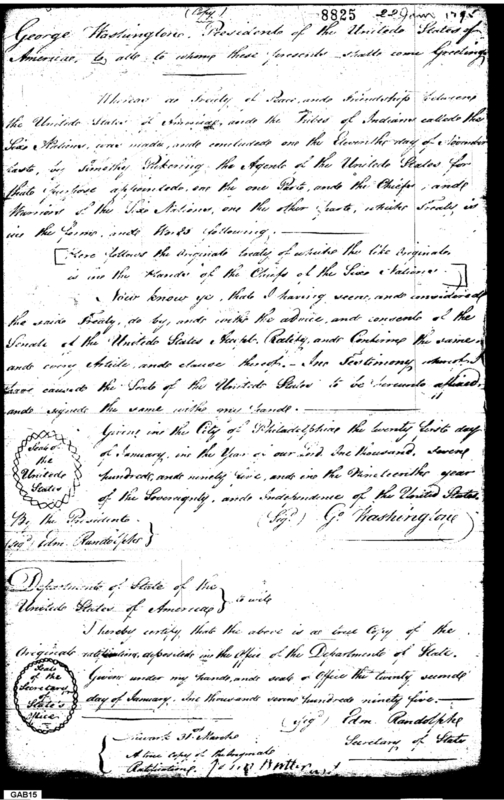 (Copy)
8825 22 Jan 1795
George Washington, President of the United States of
America, to all to whom these presents shall come Greeting
Whereas a Treaty of Peace and Friendship between
the United States of America, and the Tribes of Indians called the
Six Nations, was made and concluded on the Eleventh day of November
last, by Timothy Pickering the Agent of the United States for
that purpose appointed, on the one Part, and the Chiefs and
Warriors of the Six Nations, on the other part, which Treaty is
in the form, and Words following.
[Here follows the original treaty of which the like original
is in the Hands of the Chiefs of the Six Nations]
Now know ye, that I having seen and considered
the said Treaty, do by and with the advice and consent of the
Senate of the United States Accept, Ratify, and Confirm the same
and every Article and clause thereof. In Testimony whereof I
have caused the Seal of the United States to be hereunto affixed,
and signed the same with my hand.
Given in the City of Philadelphia the twenty first day
of January, in the Year of our Lord One thousand, seven
hundred, and ninety five, and in the Nineteenth year
of the Sovereignty, and Independence of the United States.
Seal of
the
United
States
(Sigd) Go Washington
By the President
(sigd) Edm. Randolph
Department of State of the
United States of America } to wit
I hereby certify, that the above is a true Copy of the
Original ratification, deposited in the Office of the Department of State.
Given under my hand, and seal of Office the twenty second
day of January. One thousand seven hundred ninety five.
Seal
of the
Secretary
of State's
Office
(Sigd) Edm Randolph
Secretary of State
Newark 31st March
A true copy of the original
Ratification.
GAB15